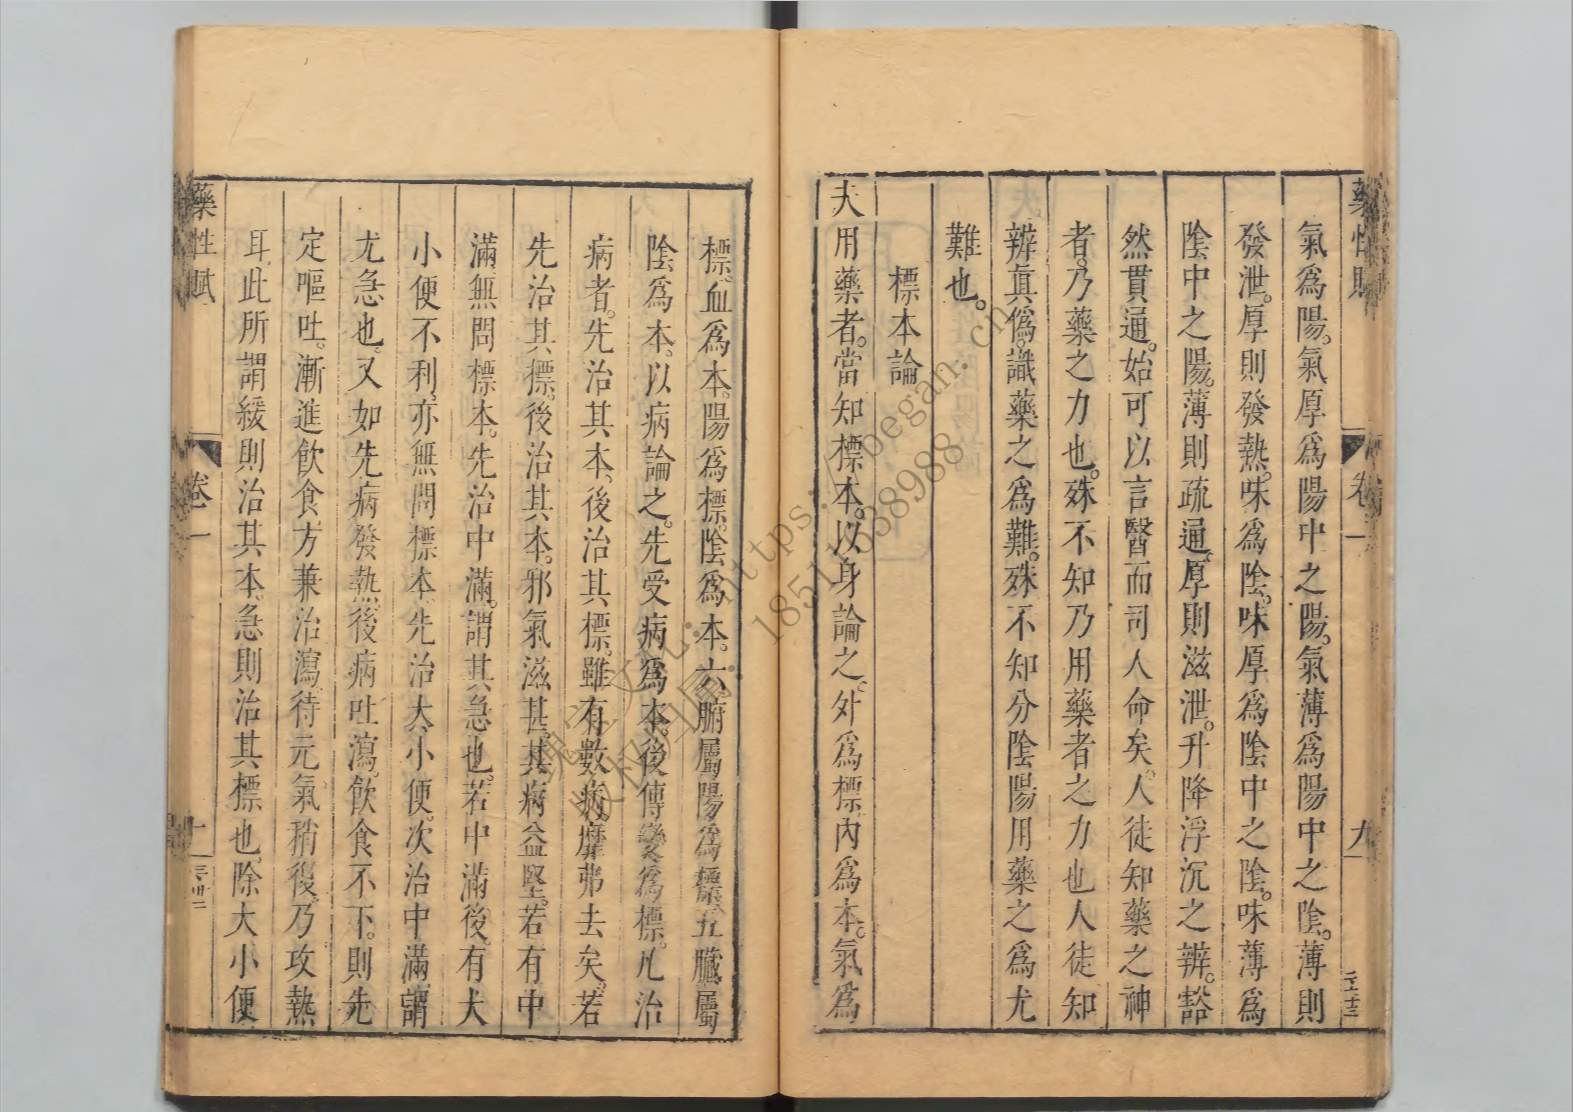 藥性賦 卷一 九
氣爲陽。氣厚爲陽中之陽。氣薄爲陽中之陰。薄則
發泄。厚則發熱。味爲陰。味厚爲陰中之陰。味薄爲
陰中之陽。薄則疏通。厚則滋泄。升降浮沉之辨。豁
然貫通。始可以言醫而司人命矣。人徒知藥之神
者。乃藥之力也。殊不知乃用藥者之力也人徒知
辨真僞。識藥之爲難。殊不知分陰陽用藥之爲尤
難也。
標本論
夫用藥者。當知標本。以身論之。外爲標內爲本。氣爲
標。血爲本。陽爲標。陰爲本。六腑屬陽爲標。五臟屬
陰爲本。以病論之。先受病爲本。後傳變爲標。凡治
病者。先治其本。後治其標。雖有數病。靡弗去矣。若
先治其標。後治其本。邪氣滋甚。其病益堅。若有中
滿無問標本。先治中滿。謂其急也。若中滿後。有大
小便不利。亦無問標本。先治大小便。次治中滿。謂
尤急也。又如先病發熱。後病吐瀉。飲食不下。則先
定嘔吐。漸進飲食。方兼治瀉。待元氣稍復。乃攻熱
耳此所謂緩則治其本。急則治其標也。除大小便
藥性賦 卷一 十
https:
began.cn
版权归属: